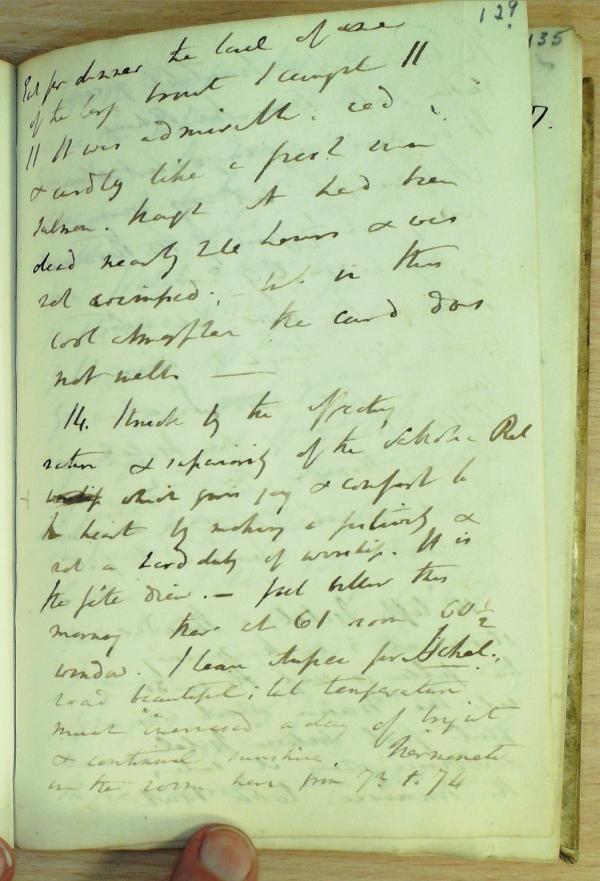 129
135
Eat for dinner the tail of one
of the large trout I caught 11
11 It was admirable. red
& curdly like a fresh run
salmon. though it had been
dead nearly 26 hours & was
not crimped; – but in this
cool atmosphere the curd does
not melt —
14. Struck by the effecting
nature & superiority of the Catholic Rel
which gives joy & comfort to
the heart by making a festivity &
not a hard duty of worship. It is
the fête Dieu. – feel better this
morning ther at 61 room 60½
window. I leave for Ischel.
road beautiful; but temperature
much increased a day of bright
& continual sunshine. Thermometer
in the room here from 73 to 74
7.